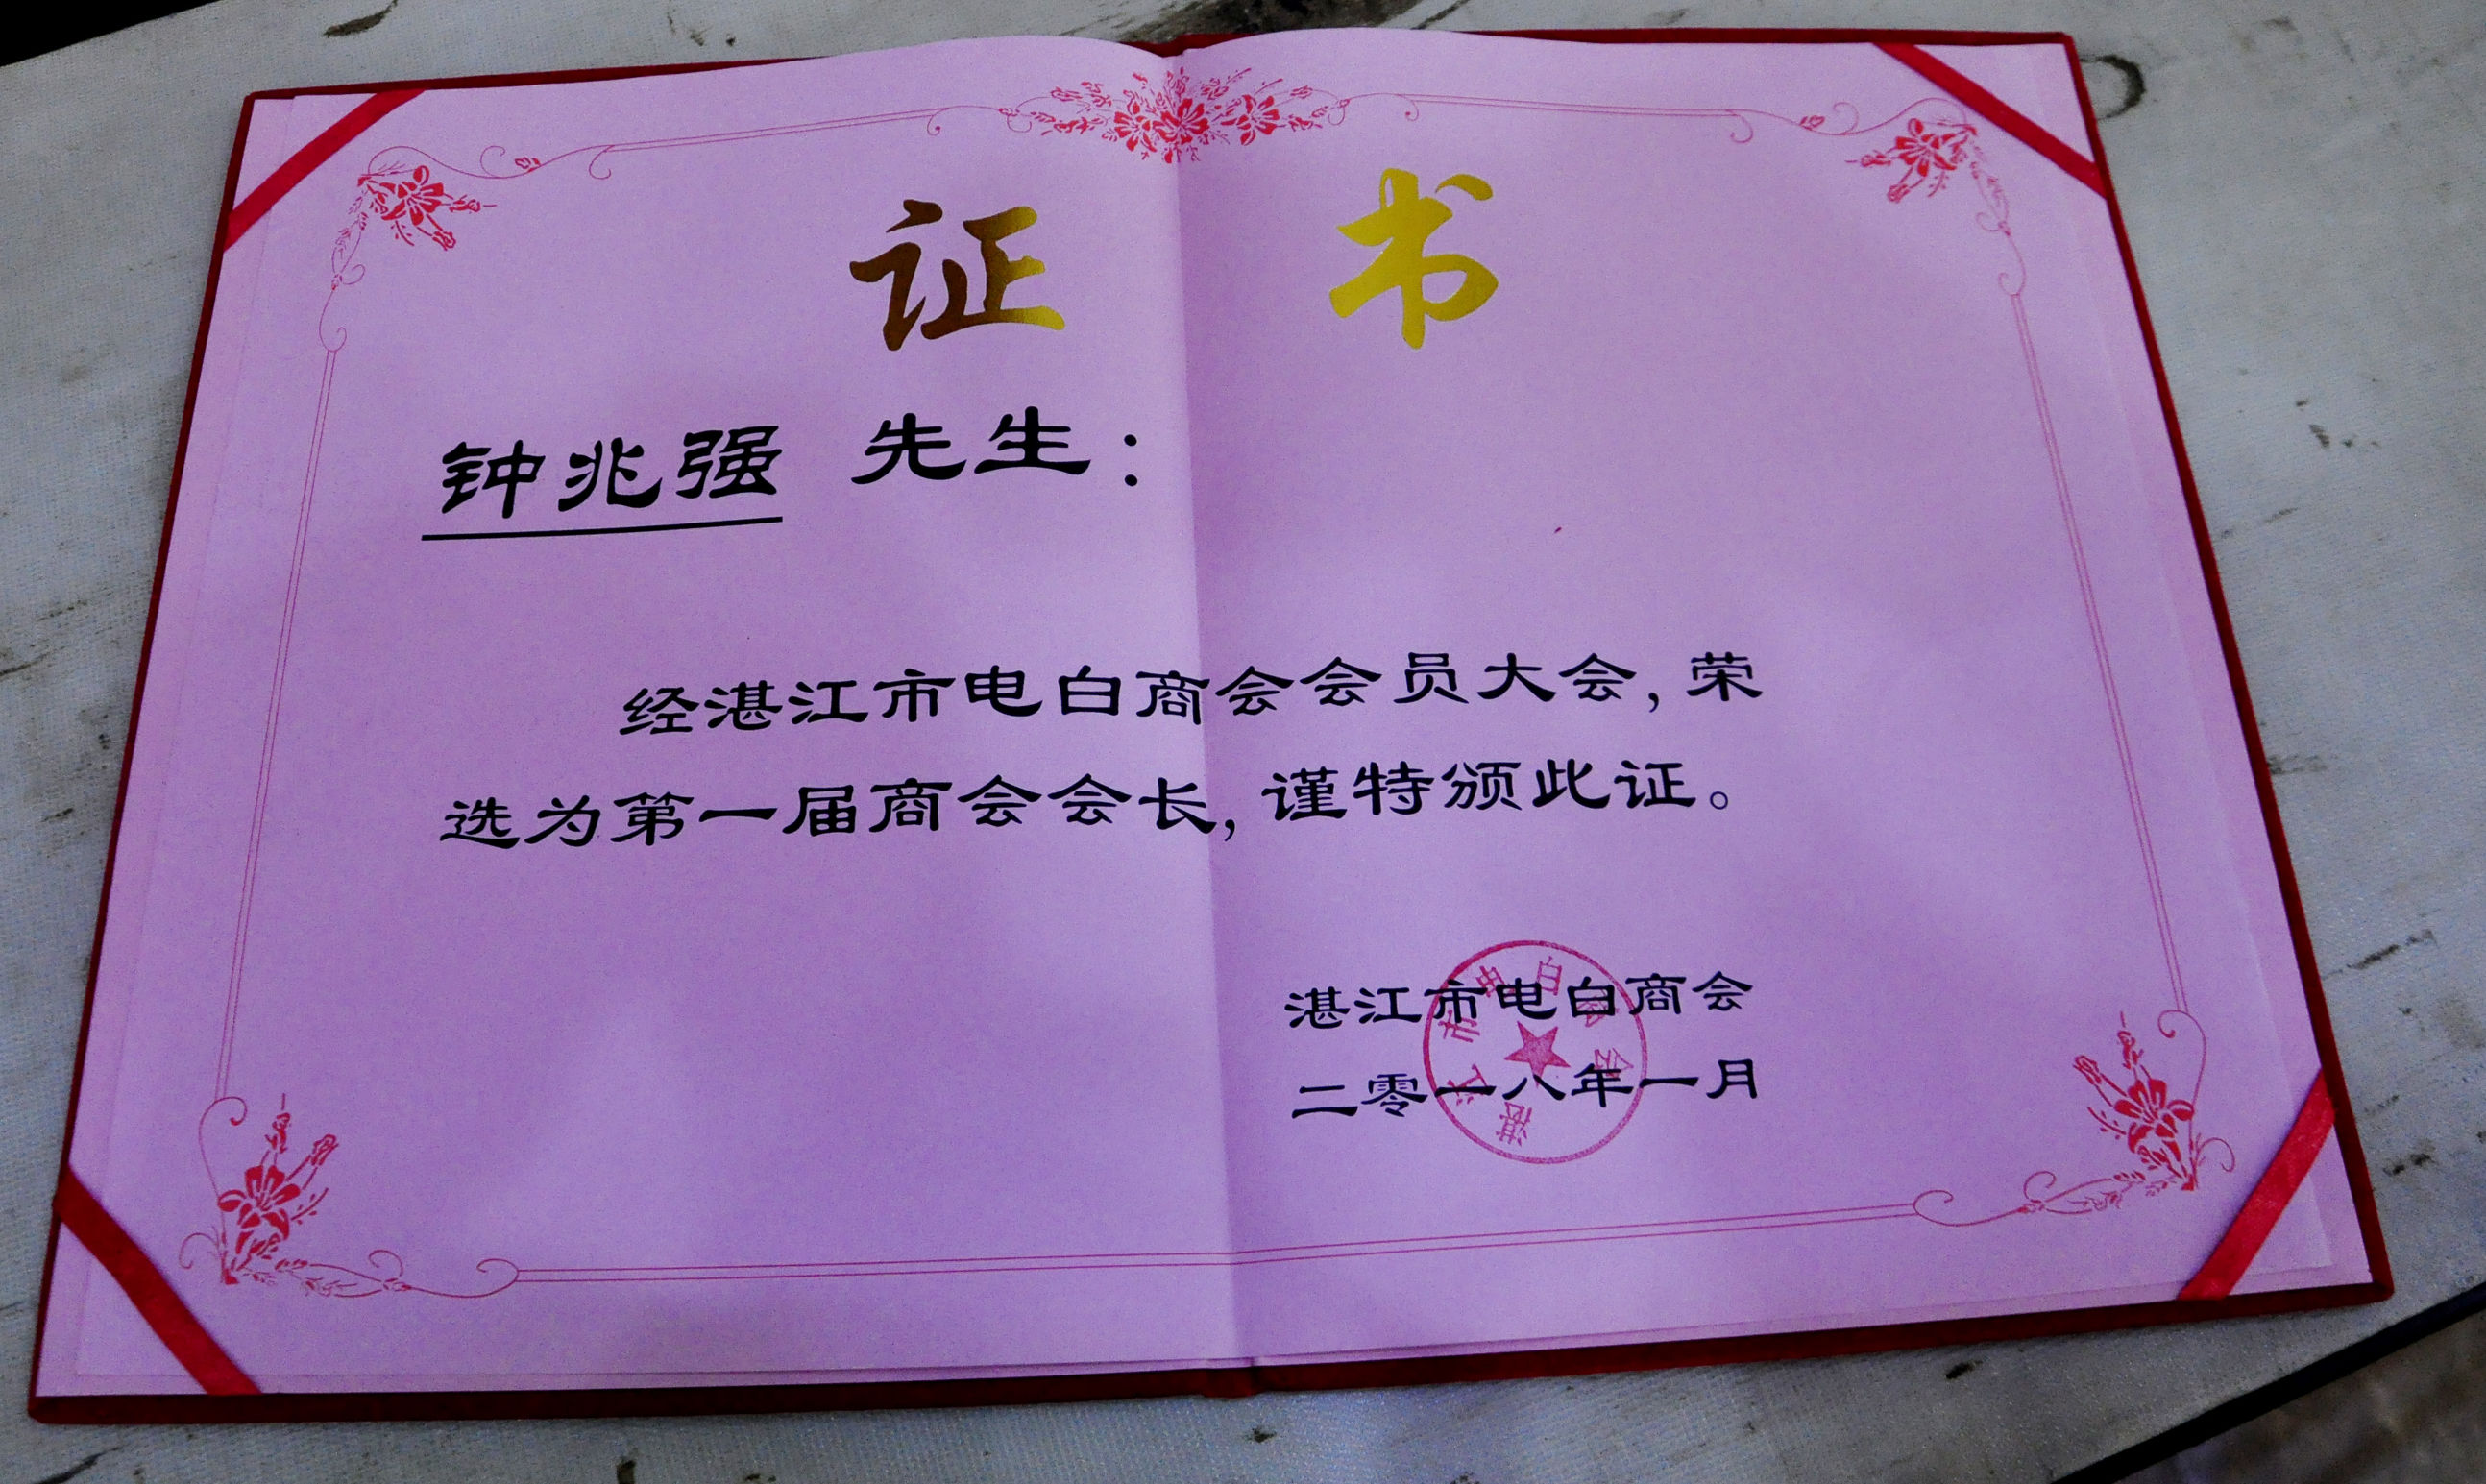 证 书
钟兆强 先生：
经湛江市电白商会会员大会，荣
选为第一届商会会长，谨特颁此证。
湛江市电白商会
二零一八年一月
湛江市电白商会